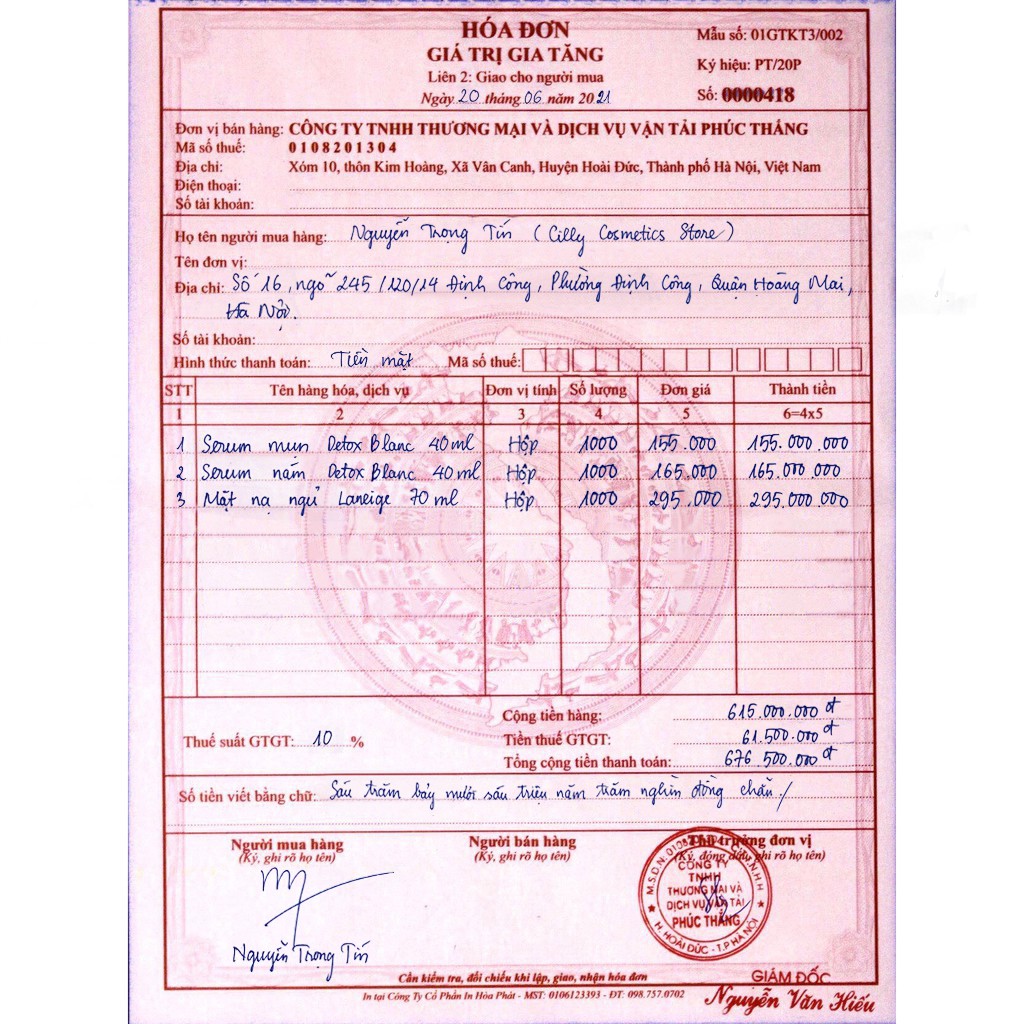 HÓA ĐƠN
GIÁ TRỊ GIA TĂNG
Liên 2: Giao cho người mua
Ngày 20 tháng 06 năm 2021
Mẫu số: 01GTKT3/002
Ký hiệu: PT/20P
Số: 0000418
Đơn vị bán hàng: CÔNG TY TNHH THƯƠNG MẠI VÀ DỊCH VỤ VẬN TẢI PHÚC THẮNG
Mã số thuế: 0108201304
Địa chỉ: Xóm 10, thôn Kim Hoàng, Xã Vân Canh, Huyện Hoài Đức, Thành phố Hà Nội, Việt Nam
Điện thoại:
Số tài khoản:
Họ tên người mua hàng: Nguyễn Trọng Tín (Cilly Cosmetics Store)
Tên đơn vị:
Địa chỉ: Số 16, ngõ 245/120/14 Định Công, Phường Định Công, Quận Hoàng Mai,
Hà Nội.
Số tài khoản:
Hình thức thanh toán: Tiền mặt Mã số thuế:
STT Tên hàng hóa, dịch vụ Đơn vị tính Số lượng Đơn giá Thành tiền
1 2 3 4 5 6=4x5
1 Serum mụn Detox Blanc 40ml Hộp 1000 155.000 155.000.000
2 Serum nám Detox Blanc 40ml Hộp 1000 165.000 165.000.000
3 Mặt nạ ngủ Laneige 70ml Hộp 1000 295.000 295.000.000
Cộng tiền hàng: 615.000.000 đ
Thuế suất GTGT: 10 % Tiền thuế GTGT: 61.500.000 đ
Tổng cộng tiền thanh toán: 676 500.000 đ
Số tiền viết bằng chữ: Sáu trăm bảy mươi sáu triệu năm trăm nghìn đồng chẵn./
Người mua hàng Người bán hàng Thủ trưởng đơn vị
(Ký, ghi rõ họ tên) (Ký, ghi rõ họ tên) (Ký, đóng dấu, ghi rõ họ tên)
CÔNG TY
TNHH
THƯƠNG MẠI VÀ
DỊCH VỤ VẬN TẢI
PHÚC THẮNG
H. HOÀI ĐỨC - T.P HÀ NỘI
Nguyễn Trọng Tín
Cần kiểm tra, đối chiếu khi lập, giao, nhận hóa đơn
In tại Công Ty Cổ Phần In Hòa Phát - MST: 0106123393 - ĐT: 098.757.0702
GIÁM ĐỐC
Nguyễn Văn Hiếu